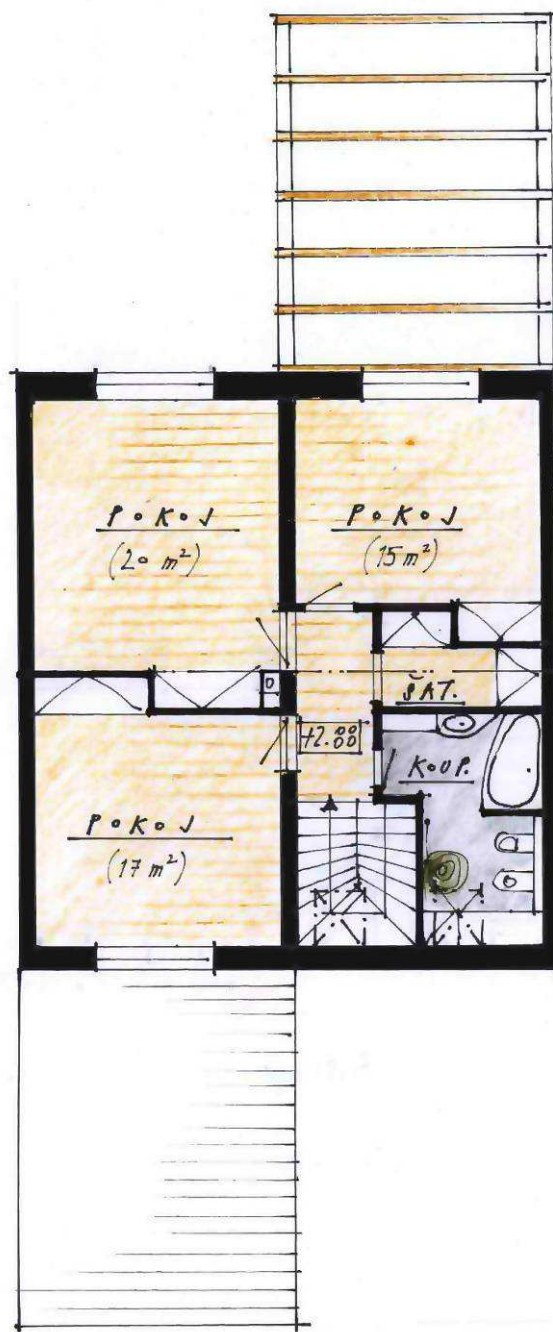 POKOJ
(20 m²)
POKOJ
(15 m²)
ŠAT.
+2.80
KOUP.
POKOJ
(17 m²)